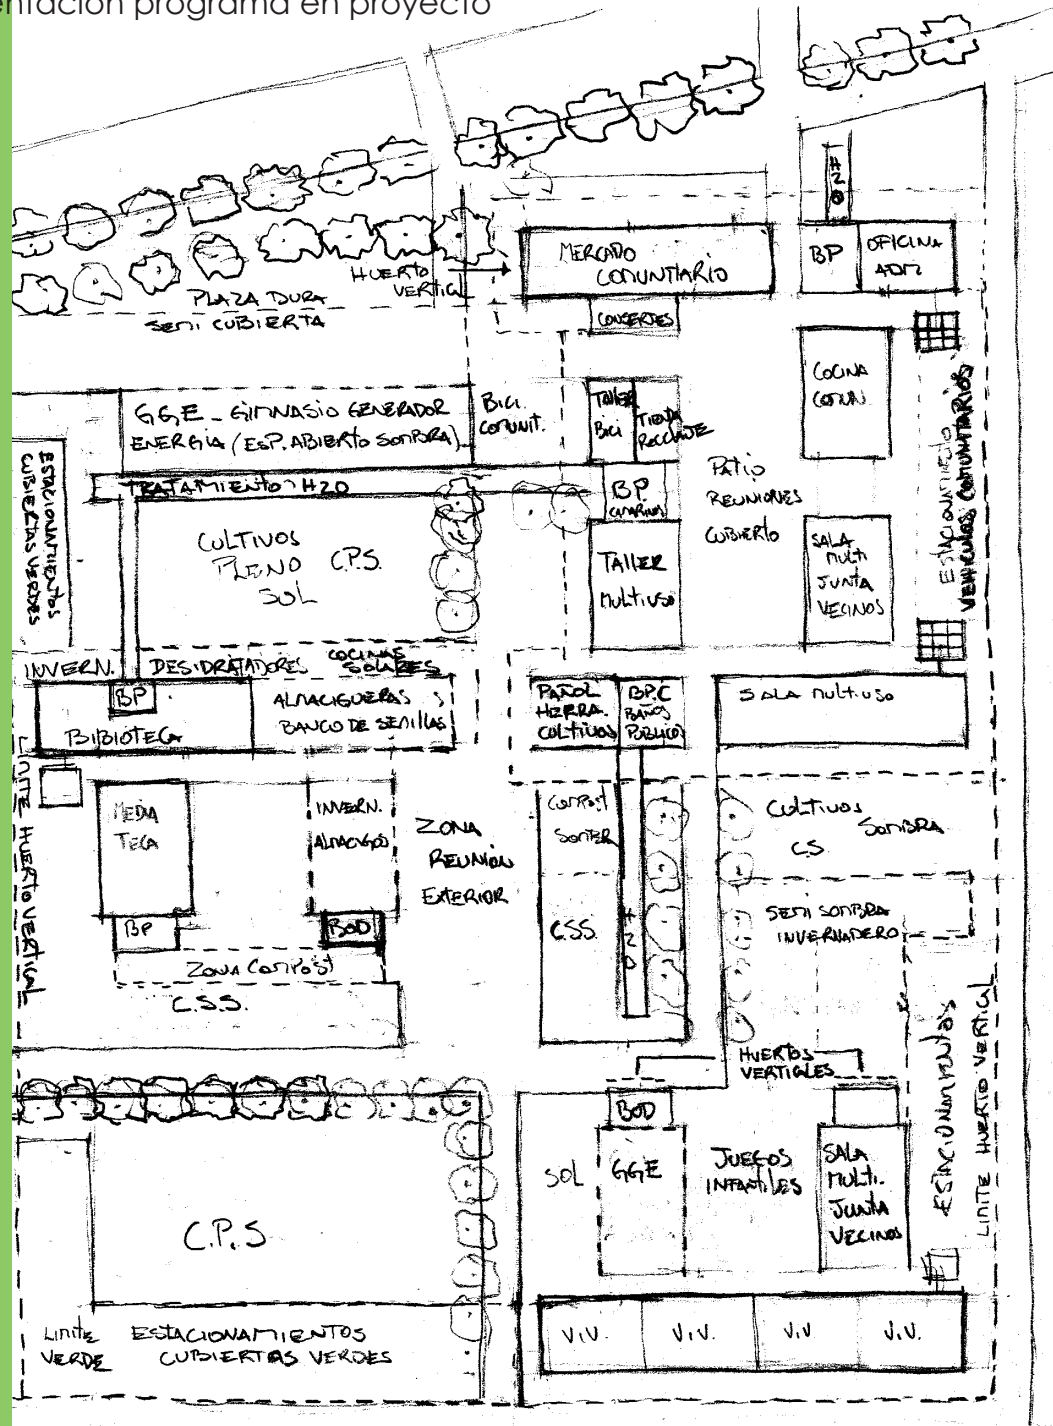 entación programa en proyecto
H2O
MERCADO
COMUNTIARIO
BP
OFICINA
ADM
HUERTO
VERTICAL
PLAZA DURA
SEMI CUBIERTA
CONSERJES
COCINA
COMUN.
GGE - GIMNASIO GENERADOR
ENERGIA (ESP. ABIERTO SOMBRA)
BICI
COMUNIT.
TALLER
BICI
TIENDA
RECICLAJE
ESTACIONAMIENTO
VEHICULOS COMUNITARIOS
ESTACIONAMIENTOS
CUBIERTAS VERDES
TRATAMIENTO H2O
BP.
CAMARINES
PATIO
REUNIONES
CUBIERTO
CULTIVOS
PLENO C.P.S.
SOL
TALLER
MULTIUSO
SALA
MULTI
JUNTA
VECINOS
INVERN.
DESIDRATADORES
COCINAS
SOLARES
BP
BIBIOTECA
ALMACIGUERAS Y
BANCO DE SEMILLAS
PAÑOL
HERRA.
CULTIVOS
BP.C
BAÑOS
PUBLICOS
SALA MULT.USO
LIMITE HUERTO VERTICAL
MEDIA
TECA
INVERN.
ALMACIGOS
ZONA
REUNION
EXTERIOR
COMPOST
CULTIVOS
SOMBRA
C.S
BP
BOD
C.S.S.
H2O
SEMI SOMBRA
INVERNADERO
ZONA COMPOST
C.S.S.
HUERTOS
VERTICALES
ESTACIONAMIENTOS
LIMITE HUERTO VERTICAL
BOD
SOL
GGE
JUEGOS
INFANTILES
SALA
MULTI.
JUNTA
VECINOS
C.P.S
LIMITE
VERDE
ESTACIONAMIENTOS
CUBIERTAS VERDES
VIV.
VIV.
VIV
VIV.